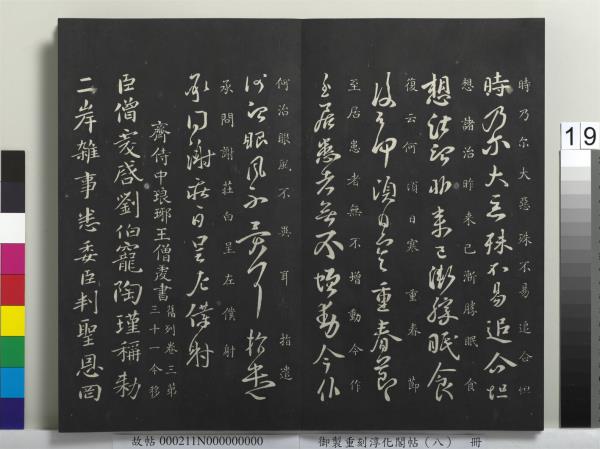 時乃尓大惡殊不易追合怛
時乃尓大惡殊不易追合怛
想諸治昨來已漸勝眠食
想諸治昨來已漸勝眠食
復云何須日寒重春節
復云何須日寒重春節
至居患者無不增動今作
至居患者無不增動今作
何治眼風不異耳 指遣
何治眼風不異耳指遣
承問謝莊白呈左僕射
承問謝莊白呈左僕射
齊侍中琅琊王僧虔書
舊列卷三第
三十一今移
臣僧虔啓劉伯寵陶瑾稱勅
二岸雜事悉委臣判聖恩罔
19
故帖 000211N000000000
御製重刻淳化閣帖(八) 冊